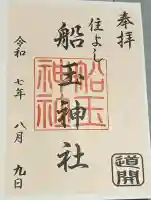 奉拝
住よし
船玉神社
船玉神社
道開
令和七年八月九日